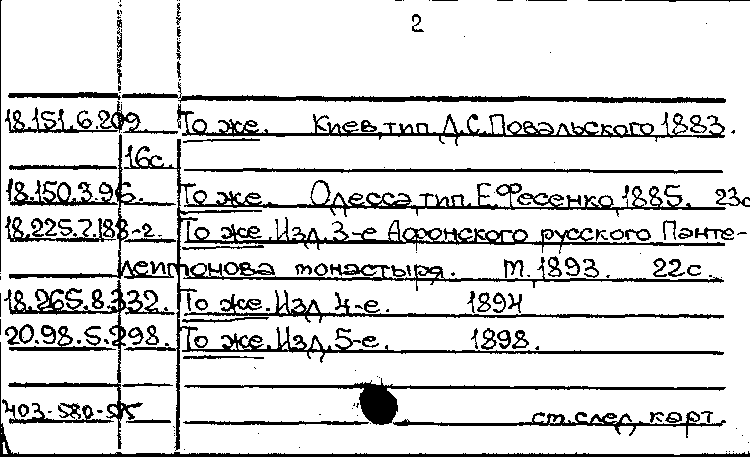 2
18.151.6.209. То же. Киев, тип. Д.С.Повальского, 1883.
16с.
18.150.3.96. То же. Одесса, тип. Е.Фесенко, 1885. 23с
18.225.7.188-2. То же. Изд. 3-е Афонского русского Панте-
леймонова монастыря. М. 1893. 22с.
18.265.8.332. То же. Изд. 4-е. 1894
20.98.5.298. То же. Изд. 5-е. 1898.
403-580-55 ст. след. карт.